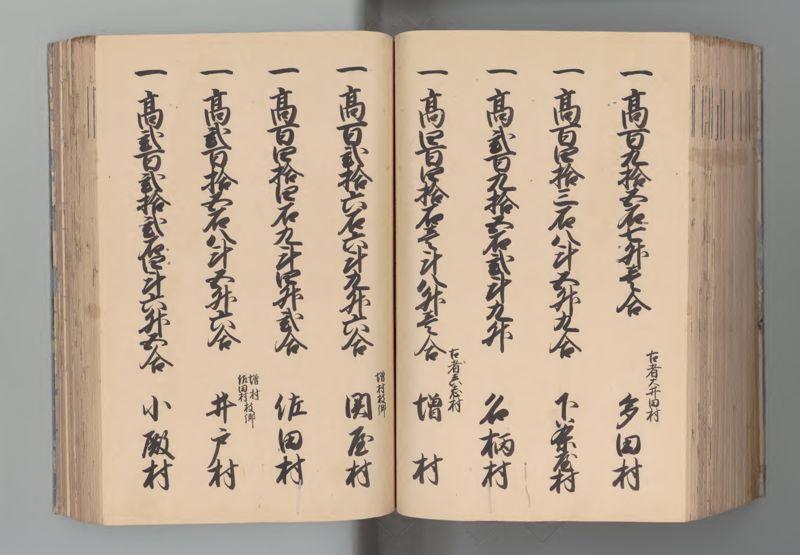 一高百九拾五石七升壱合
古者大井田村
多田村
一高百四拾三石八斗五升九合
下茶屋村
一高弐百九拾五石弐斗九升
名柄村
一高四百四拾石壱斗八升壱合
増村
一高百弐拾六石六斗九升六合
増村枝郷
関屋村
一高百四拾四石九斗四升弐合
佐田村
一高弐百拾五石八斗五升六合
増村
佐田村枝郷
井戸村
一高弐百弐拾弐石 斗六升五合
小殿村